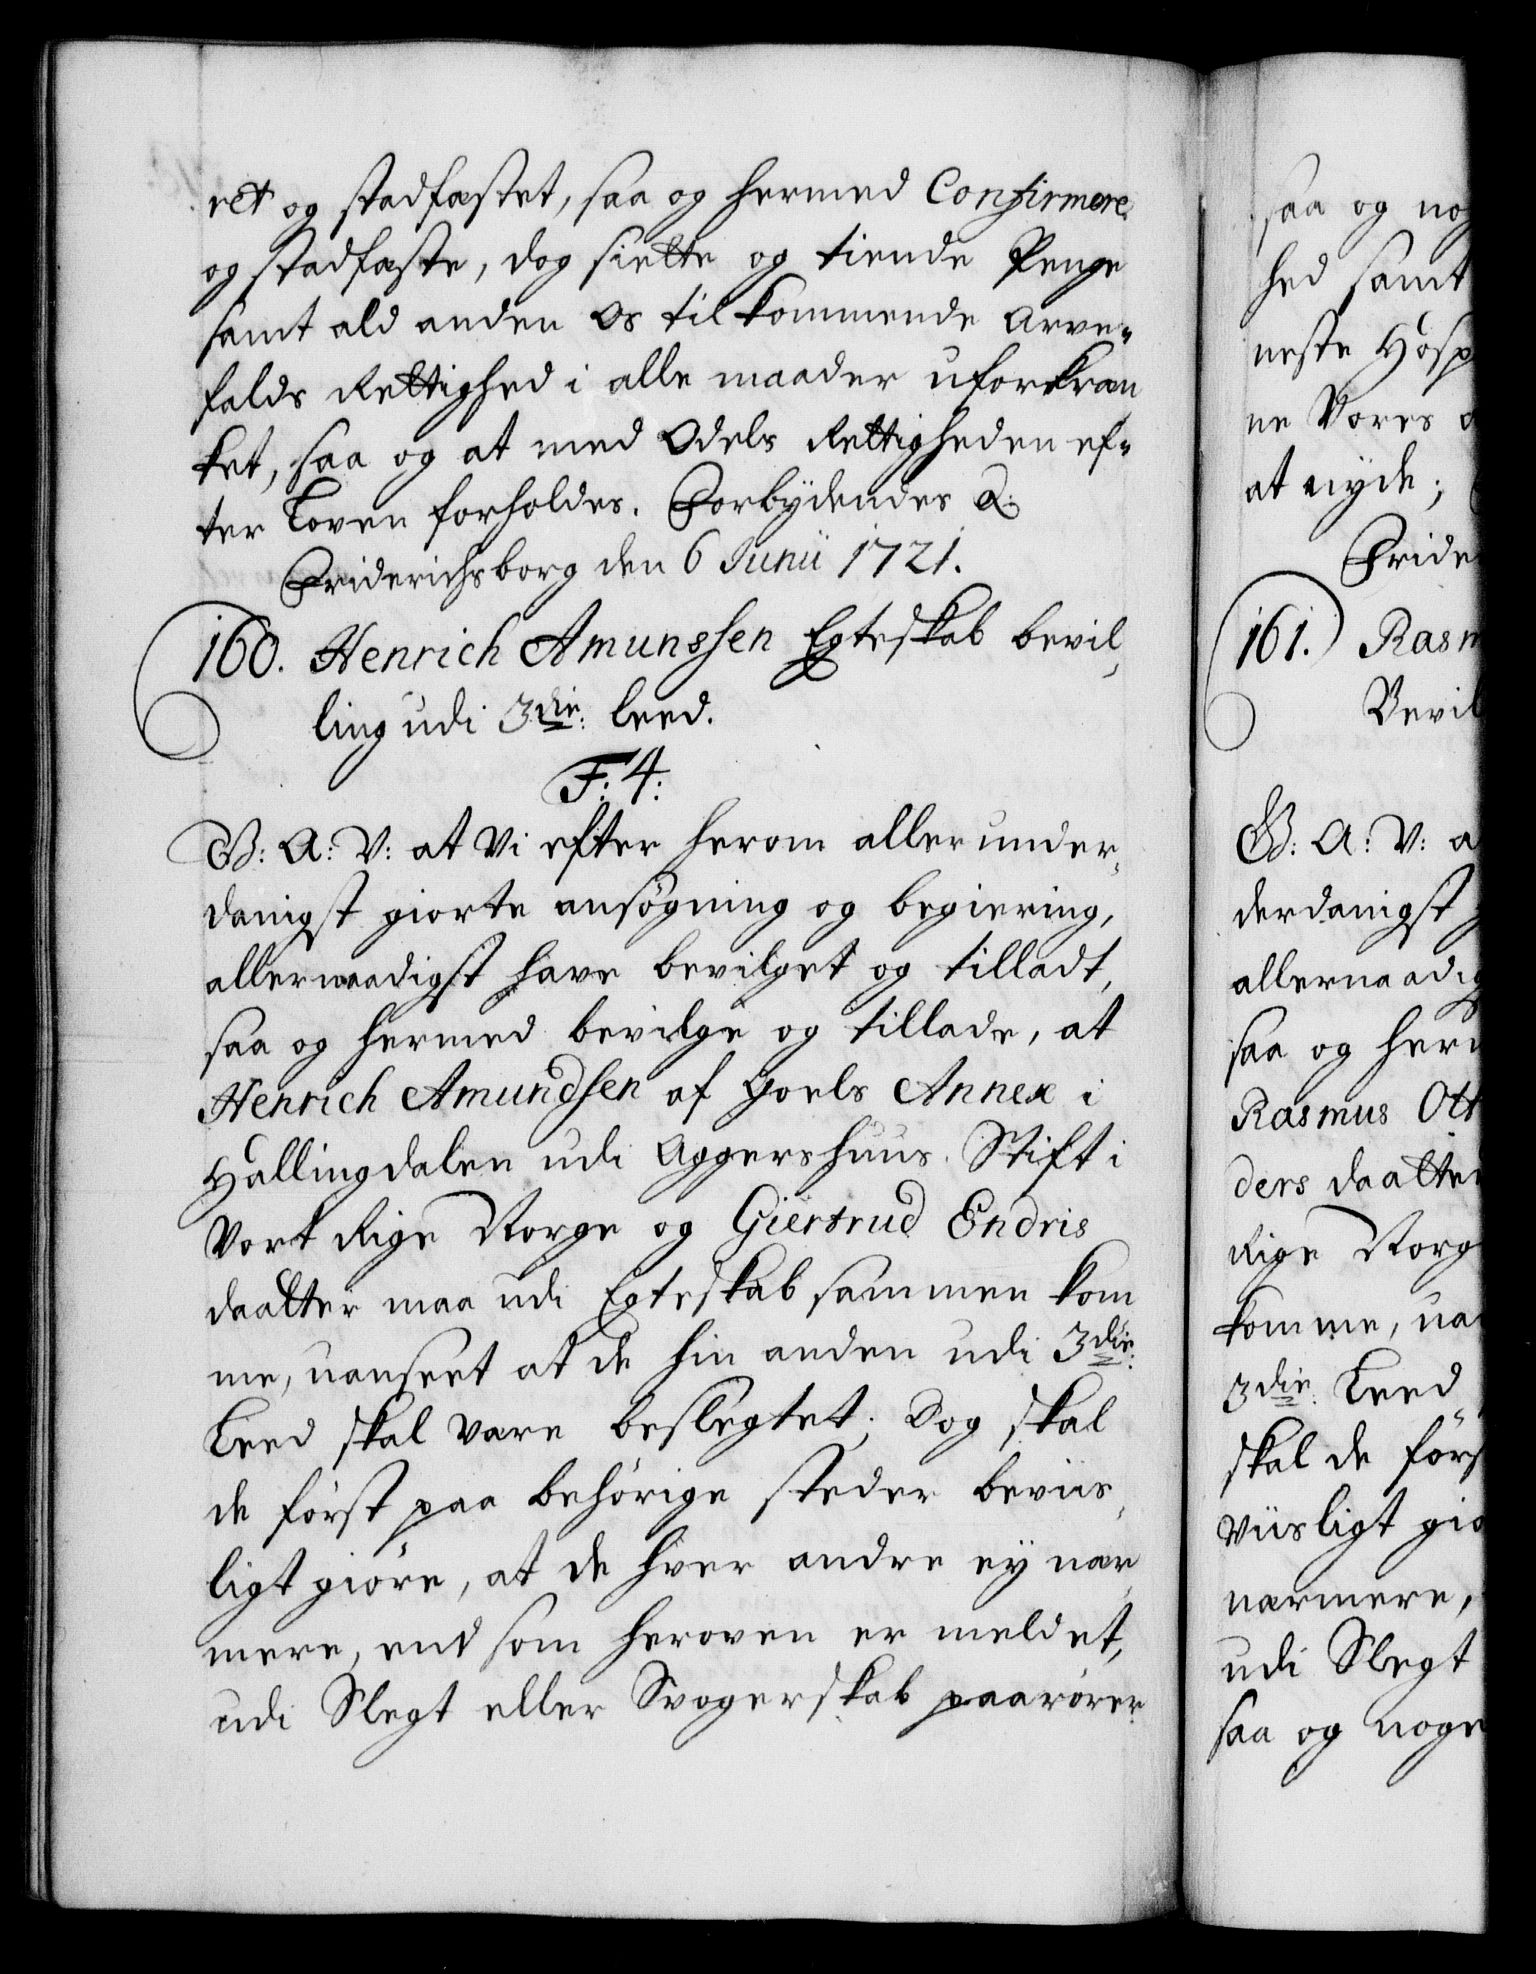 ret og stadfæstet, saa og hermed Confirmere
og stadfæste, dog siette og tiende Penge
samt ald anden Os tilkommende Arve-
falds Rettighed i alle maader uforkræn
ket, saa og at med Odels Rettigheden ef-
ter Loven forholdes. Forbydendes &:
Friderichsborg den 6 Junii 1721.
160. Henrich Amunssen Egteskab bevil,
ling udi 3die: leed.
F: 4:
G: A: V: at Vi efter herom allerunder,
danigst giorte ansøgning og begiering,
allernaadigst have bevilget og tilladt,
saa og hermed bevilge og tillade, at
Henrich Amundsen af Goels Annex i
Hallingdalen udi Aggershuus Stift i
Vort Rige Norge og Giertrud Endris
daatter maa udi Egteskab sammen kom
me, uanseet at de hin anden udi 3die:
Leed skal være beslegtet; Dog skal
de først paa behørige steder beviis,
ligt giøre, at de hver andre ey nær
mere, end som heroven er meldet,
udi Slegt eller Svogerskab paarører
saa og nog
hed samt
neste Hosp
ne Vores
at nyde;
Frider
161. Rasm
Bevil
G: A: V: a
derdanigst
allernaadig
saa og herm
Rasmus Ott
ders daatter
Rige Norg
komme, ua
3die: Leed
skal de førs
viisligt gio
nærmere,
udi Slegt
saa og noge